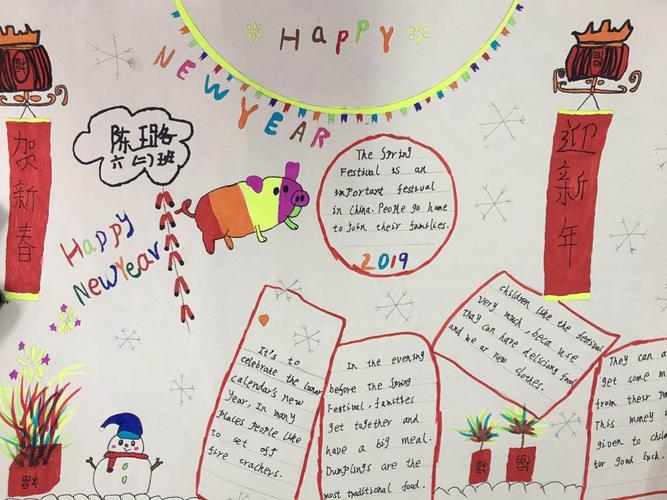 HAPPY
NEW YEAR
贺新春
陈璐
六(二)班
Happy
New Year
The Spring
Festival is an
important festival
in China. People go home
to join their families.
2019
迎新年
children like the festival
very much, beca use
thay can have delicious food
and we ar new clothes.
It's to
celebrate the lunar
calendar's new
Year, In many
places people like
to set off
fire crackers.
In the evening
before the Spring
Festival, families
get together and
have a big meal.
Dumplings are the
most traditional food.
They can a
get some m
from their
This money
given to childr
for good luck.
福
福
福
福
福